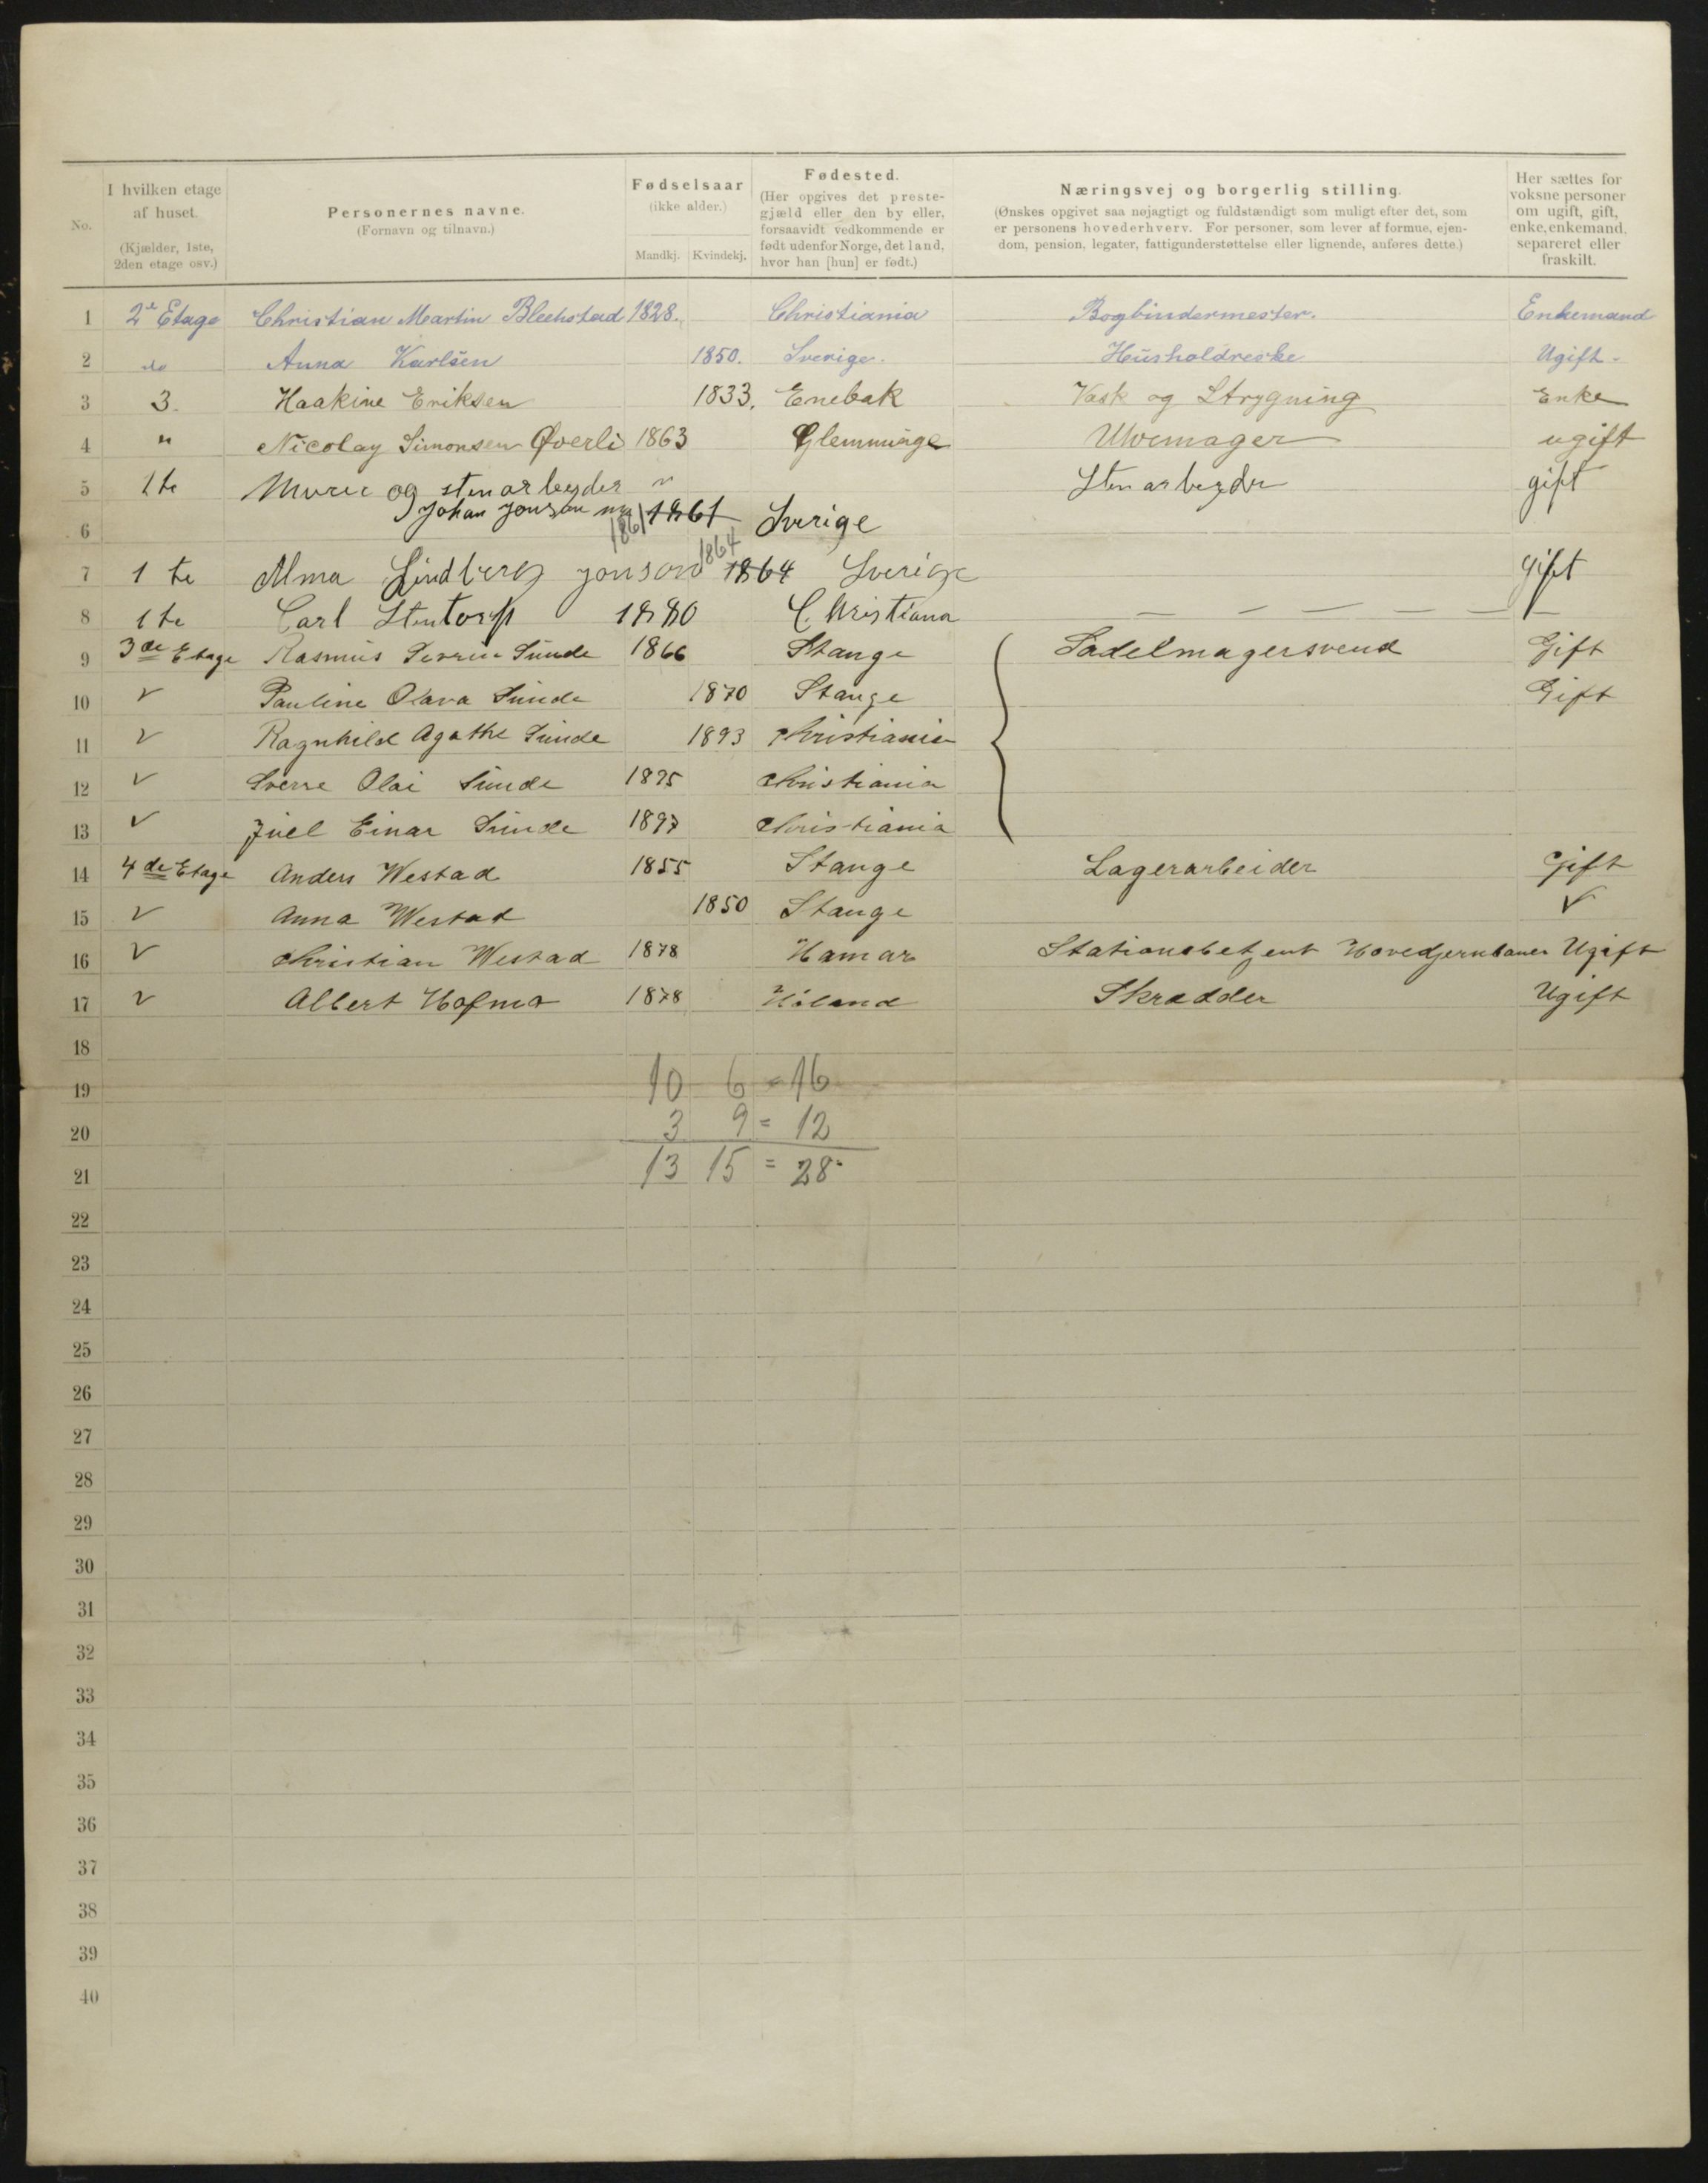 No.
I hvilken etage af huset. (Kjælder, 1ste, 2den etage osv.)
Personernes navne. (Fornavn og tilnavn.)
Fødselsaar (ikke alder.)
Mandkj. Kvindekj.
Fødested. (Her opgives det prestegjæld eller den by eller, forsaavidt vedkommende er født udenfor Norge, det land, hvor han [hun] er født.)
Næringsvej og borgerlig stilling. (Ønskes opgivet saa nøjagtigt og fuldstændigt som muligt efter det, som er personens hovederhverv. For personer, som lever af formue, ejendom, pension, legater, fattigunderstøttelse eller lignende, anføres dette.)
Her sættes for voksne personer om ugift, gift, enke, enkemand, separeret eller fraskilt.
1 2e Etage Christian Martin Blechstad 1828. Christiania Bogbindermester. Enkemand
2 do Anna Karlsen 1850. Sverige. Husholdreske Ugift -
3 3. Haakine Eriksen 1833. Enebak Vask og Strygning Enke
4 " Nicolay Simonsen Øverli 1863 Glemminge Uhrmager ugift
5 1te Murer og stenarbeyder " Stenarbeyder gift
6 Johan Jonson 1861 1861 Sverige
7 1 te Alma Lindberg Jonson 1864 1864 Sverige gift
8 1te Carl Stentorp 1880 Christiana — — — — — —
9 3de Etage Rasmus Severin Sunde 1866 Stange Sadelmagersvend Gift
10 " Pauline Olava Sunde 1870 Stange Gift
11 " Ragnhild Agathe Sunde 1893 Christiania
12 " Sverre Olai Sunde 1895 Christiania
13 " Juel Einar Sunde 1897 Christiania
14 4de Etage Anders Westad 1855 Stange Lagerarbeider Gift
15 " Anna Westad 1850 Stange "
16 " Christian Westad 1878 Hamar Stationsbetjent Hovedjernbanen Ugift
17 " Albert Hofmo 1878 Høland Skrædder Ugift
18
19 10 6 = 16
20 3 9 = 12
21 13 15 = 28
22
23
24
25
26
27
28
29
30
31
32
33
34
35
36
37
38
39
40